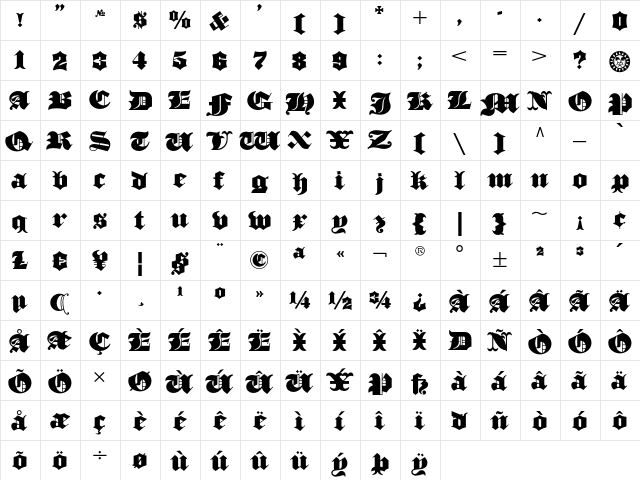 ! ” № $ % & ’ [ ] ✠ + , - . / 0
1 2 3 4 5 6 7 8 9 : ; < = > ?
A B C D E F G H I J K L M N O P
Q R S T U V W X Y Z [ \ ] ^ _ `
a b c d e f g h i j k l m n o p
q r s t u v w x y z { | } ~ ¡ ¢
£ € ¥ ¦ § ¨ © ª « ¬ ® ° ± ² ³
µ ¶ · ¸ ¹ º » ¼ ½ ¾ ¿ À Á Â Ã Ä
Å Æ Ç È É Ê Ë Ì Í Î Ï Ð Ñ Ò Ó Ô
Õ Ö × Ø Ù Ú Û Ü Ý Þ ß à á â ã ä
å æ ç è é ê ë ì í î ï ð ñ ò ó ô
õ ö ÷ ø ù ú û ü ý þ ÿ